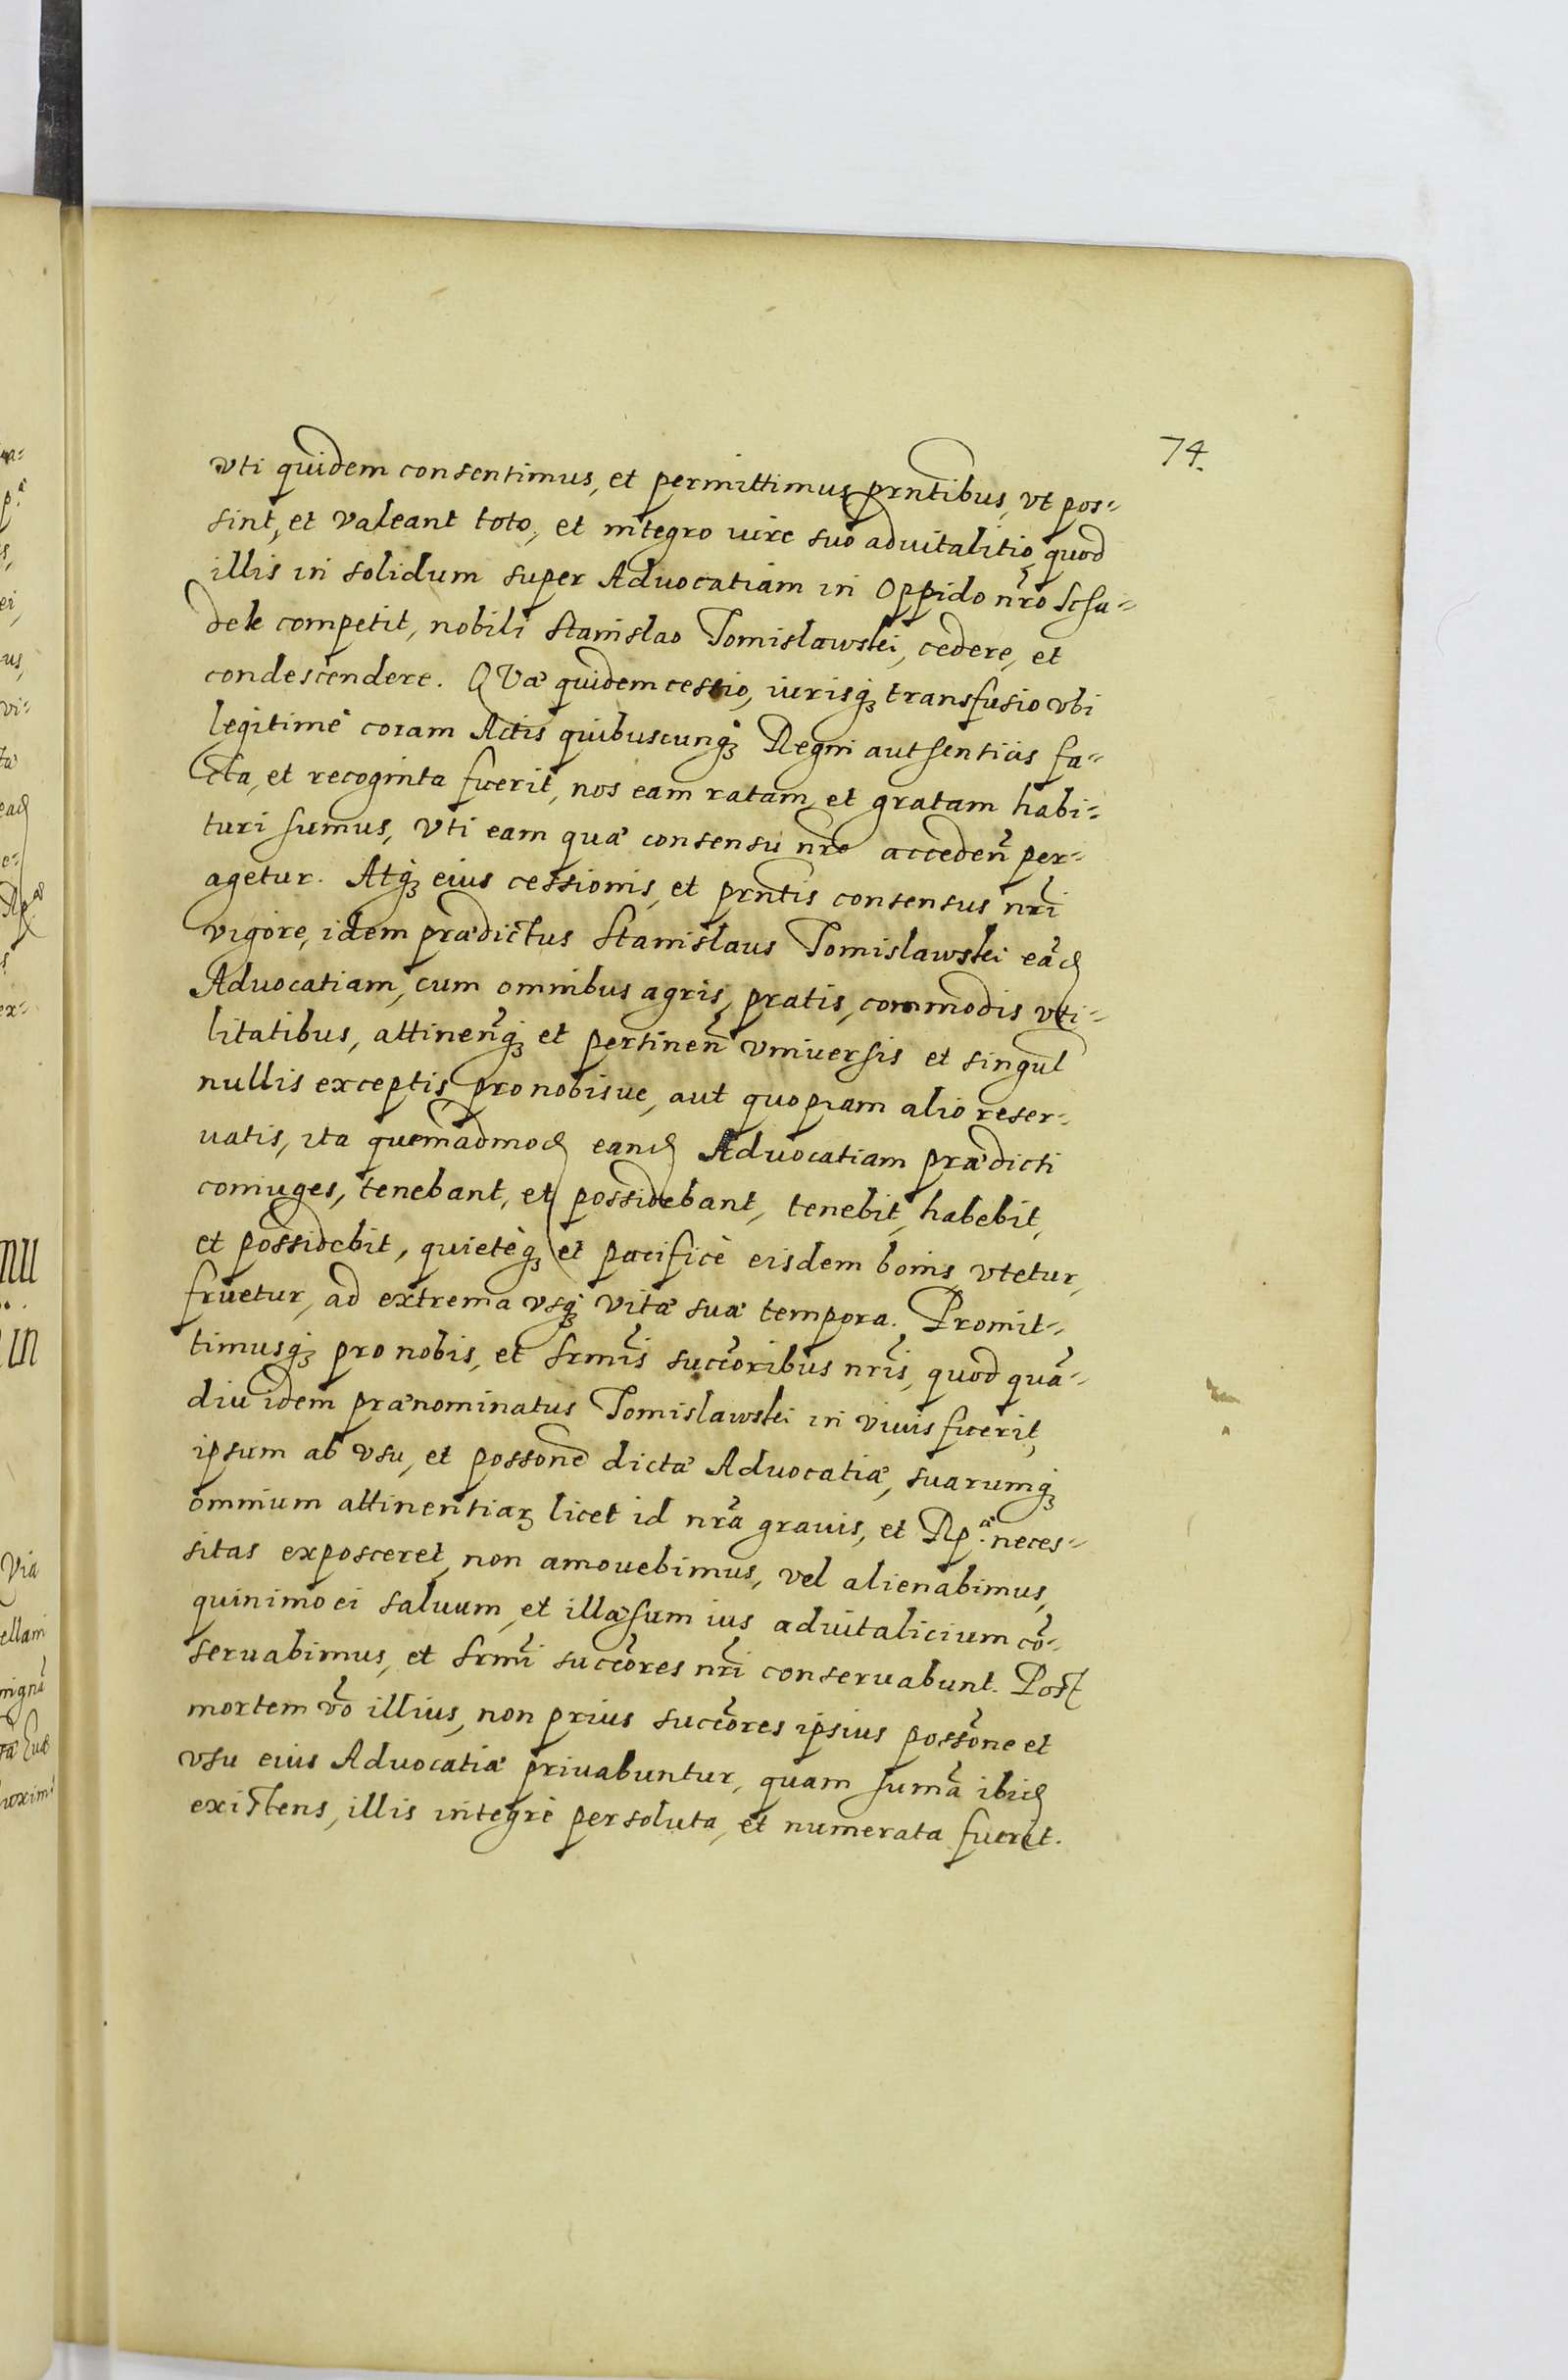 74.
vti quidem consentimus, et permittimus prñtibus, vt pos-
sint, et valeant toto, et integro iure suo aduitalitio, quod
illis in solidum super Aduocatiam in Oppido nr̃o Scha-
dek competit, nobili Stanislao Tomislawski, cedere, et
condescendere. QVæ quidem cessio, iurisq; transfusio vbi
legitimè coram Actis quibuscunq; Regni autsenticis fa-
cta, et recoginta fuerit, nos eam ratam, et gratam habi-
turi sumus, vti eam quæ consensu nr̃o acceden̄ per-
agetur. Atq; eius cessionis, et prñtis consensus nr̃i
vigore, idem prædictus Stanislaus Tomislawski eañd
Aduocatiam, cum omnibus agris, pratis, commodis vti-
litatibus, attineñq; et pertineñ vniuersis et singul
nullis exceptis, pro nobisue, aut quopiam alio reser-
uatis, ita quemadmod eand Aduocatiam prædicti
coniuges, tenebant, et possidebant, tenebit, habebit,
et possidebit, quietèq; et pacificè eisdem bonis vtetur,
fruetur, ad extrema vsq; vitæ suæ tempora. Promit-
timusq; pro nobis, et Srm̃is succ̃oribus nr̃is, quod quã-
diu idem prænominatus Tomislawski in viuis fuerit,
ipsum ab vsu, et possone dictæ Aduocatiæ, suarumq;
omnium attinentiaꝝ licet id nr̃a grauis, et Rpᵃ. neces-
sitas exposceret, non amouebimus, vel alienabimus,
quinimo ei saluum, et illæsum ius aduitalicium cõ-
seruabimus, et Srm̃i succ̃ores nr̃i conseruabunt. Post
mortem võ illius, non prius succ̃ores ipsius poss̃one et
vsu eius Aduocatiæ priuabuntur, quam sum̃a ibid
existens, illis integrè persoluta, et numerata fuerit.